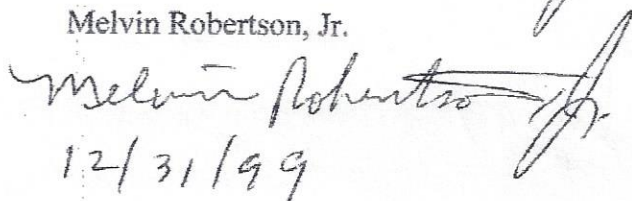 Melvin Robertson, Jr.
Melvin Robertson, Jr.
12/31/99